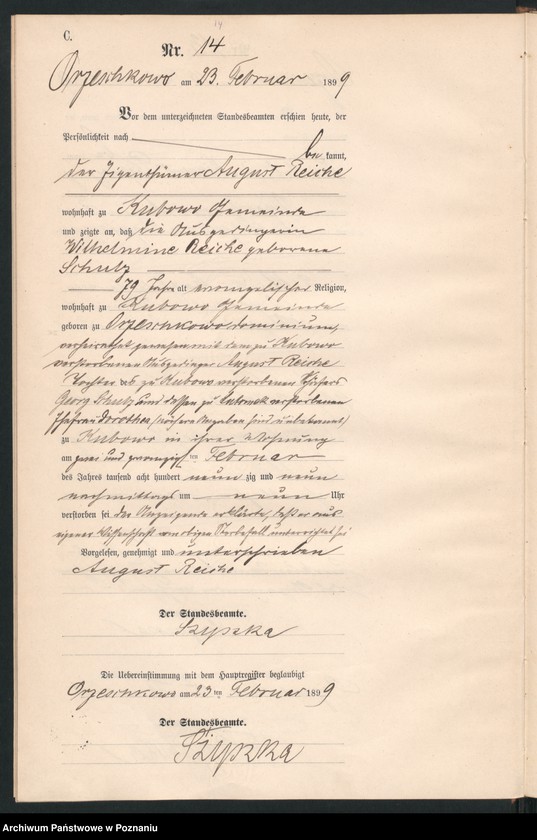 14
C.
Nr. 14
Orzeschkowo am 23. Februar 1899
Vor dem unterzeichneten Standesbeamten erschien heute, der
Persönlichkeit nach
be kannt,
der Eigenthümer August Reiche
wohnhaft zu Kubowo Gemeinde
und zeigte an, daß die Ausgedingerin
Wilhelmine Reiche geborene
Schulz
79 Jahre alt evangelischer Religion,
wohnhaft zu Kubowo Gemeinde
geboren zu Orzeschkowo dominium,
verheirathet gewesen mit dem zu Kubowo
verstorbenen Ausgedinger August Reiche
Tochter des zu Kubowo verstorbenen Schäfers
Georg Schulz und dessen zu verstorbenen
Ehefrau Dorothea (nähere Angaben sind unbekannt)
zu Kubowo in ihrer Wohnung
am zwei und zwanzigsten Februar
des Jahres tausend acht hundert neun zig und neun
nachmittags um neun Uhr
verstorben sei der Anzeigende erklärte, daß er aus
eigener Wissenschaft von obigem Sterbefall unterrichtet sei
Vorgelesen, genehmigt und unterschrieben
August Reiche
Der Standesbeamte.
Szypzka
Die Uebereinstimmung mit dem Hauptregister beglaubigt
Orzeschkowo am 23 ten Februar 1899
Der Standesbeamte.
Szypzka
Archiwum Państwowe w Poznaniu